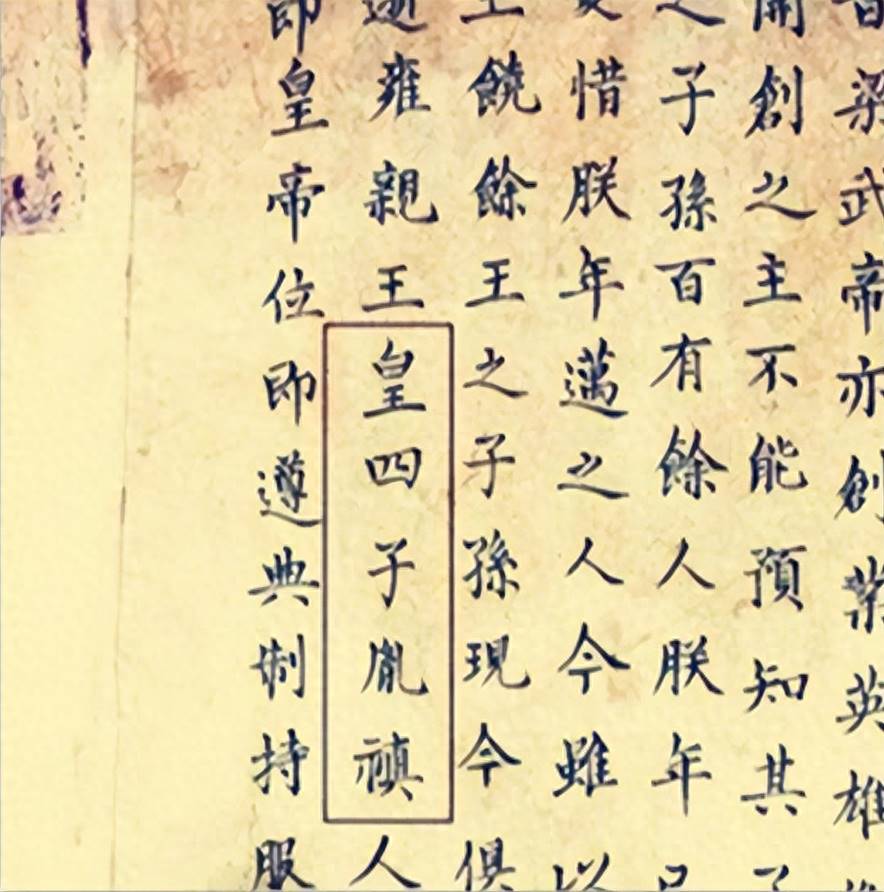 梁武帝亦創業英雄
開創之主不能預知其
之子孫百有餘人朕年
惜朕年邁之人今雖以
饒餘王之子孫現今俱
雍親王皇四子胤禛人
即皇帝位即遵典制持服